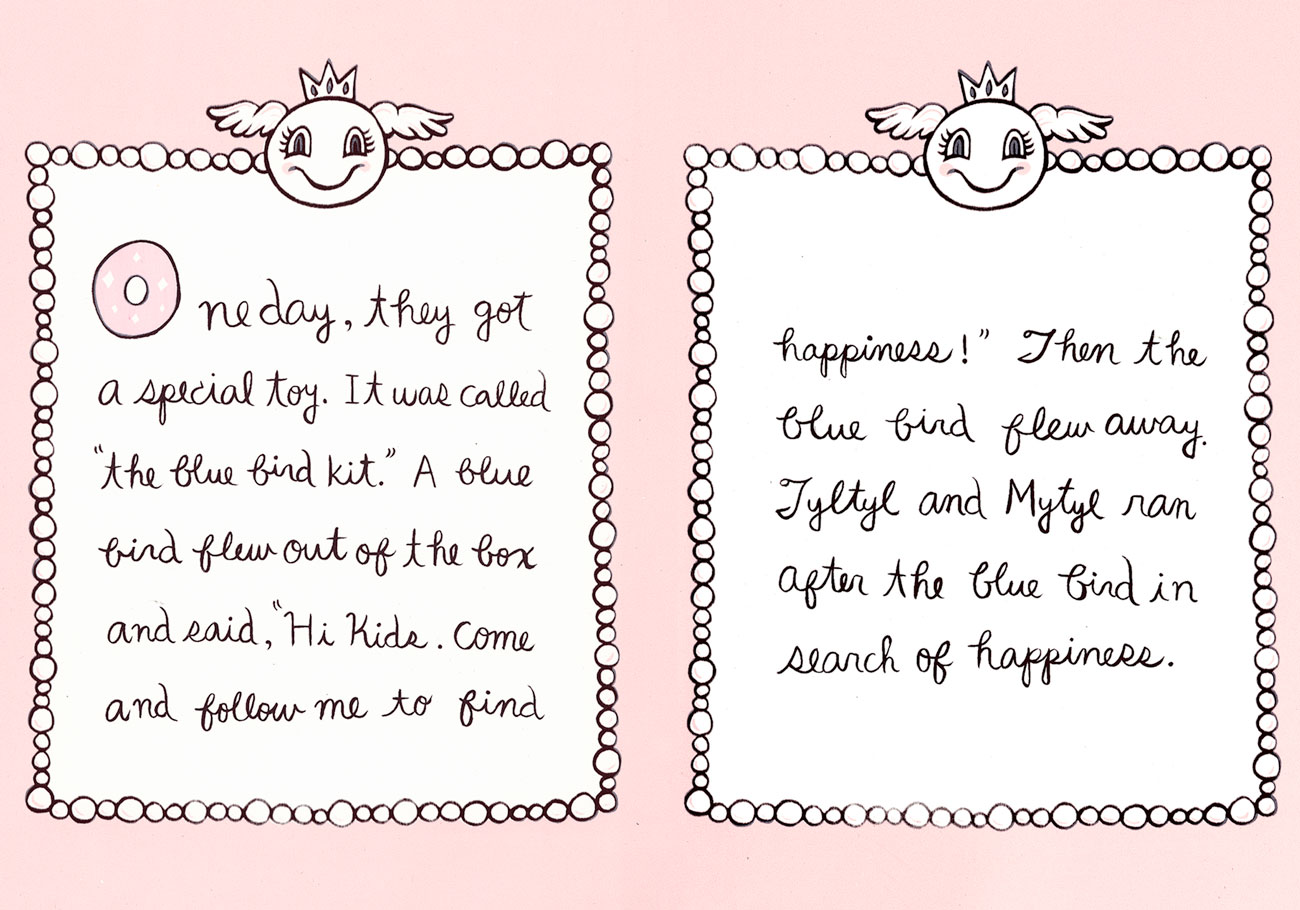 One day, they got
a special toy. It was called
"the blue bird kit." A blue
bird flew out of the box
and said, "Hi Kids. Come
and follow me to find
happiness!" Then the
blue bird flew away.
Tyltyl and Mytyl ran
after the blue bird in
search of happiness.